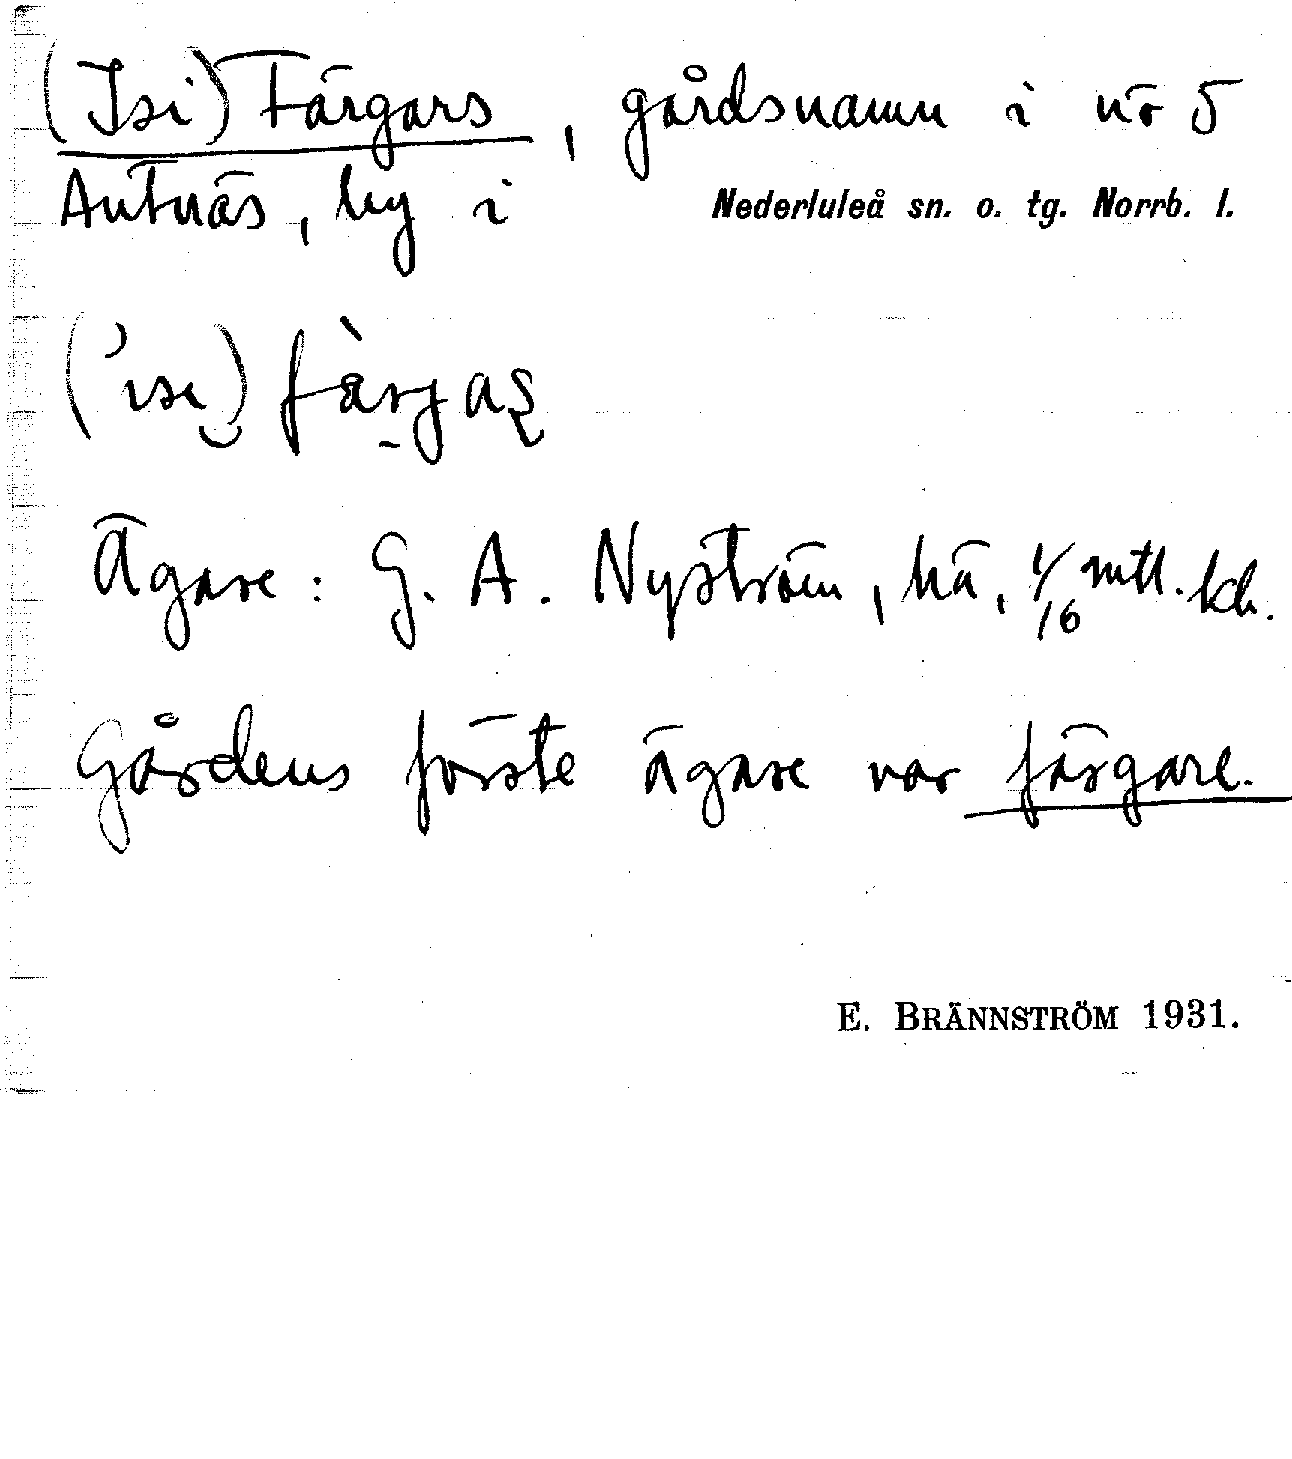 (Isi) Färgars, gårdsnamn i nr 5
Antnäs, by i Nederluleå sn. o. tg. Norrb. l.
Ägare: G. A. Nyström, hä, 1/16 mtl. kr.
Gårdens förste ägare var färgare.
E. BRÄNNSTRÖM 1931.